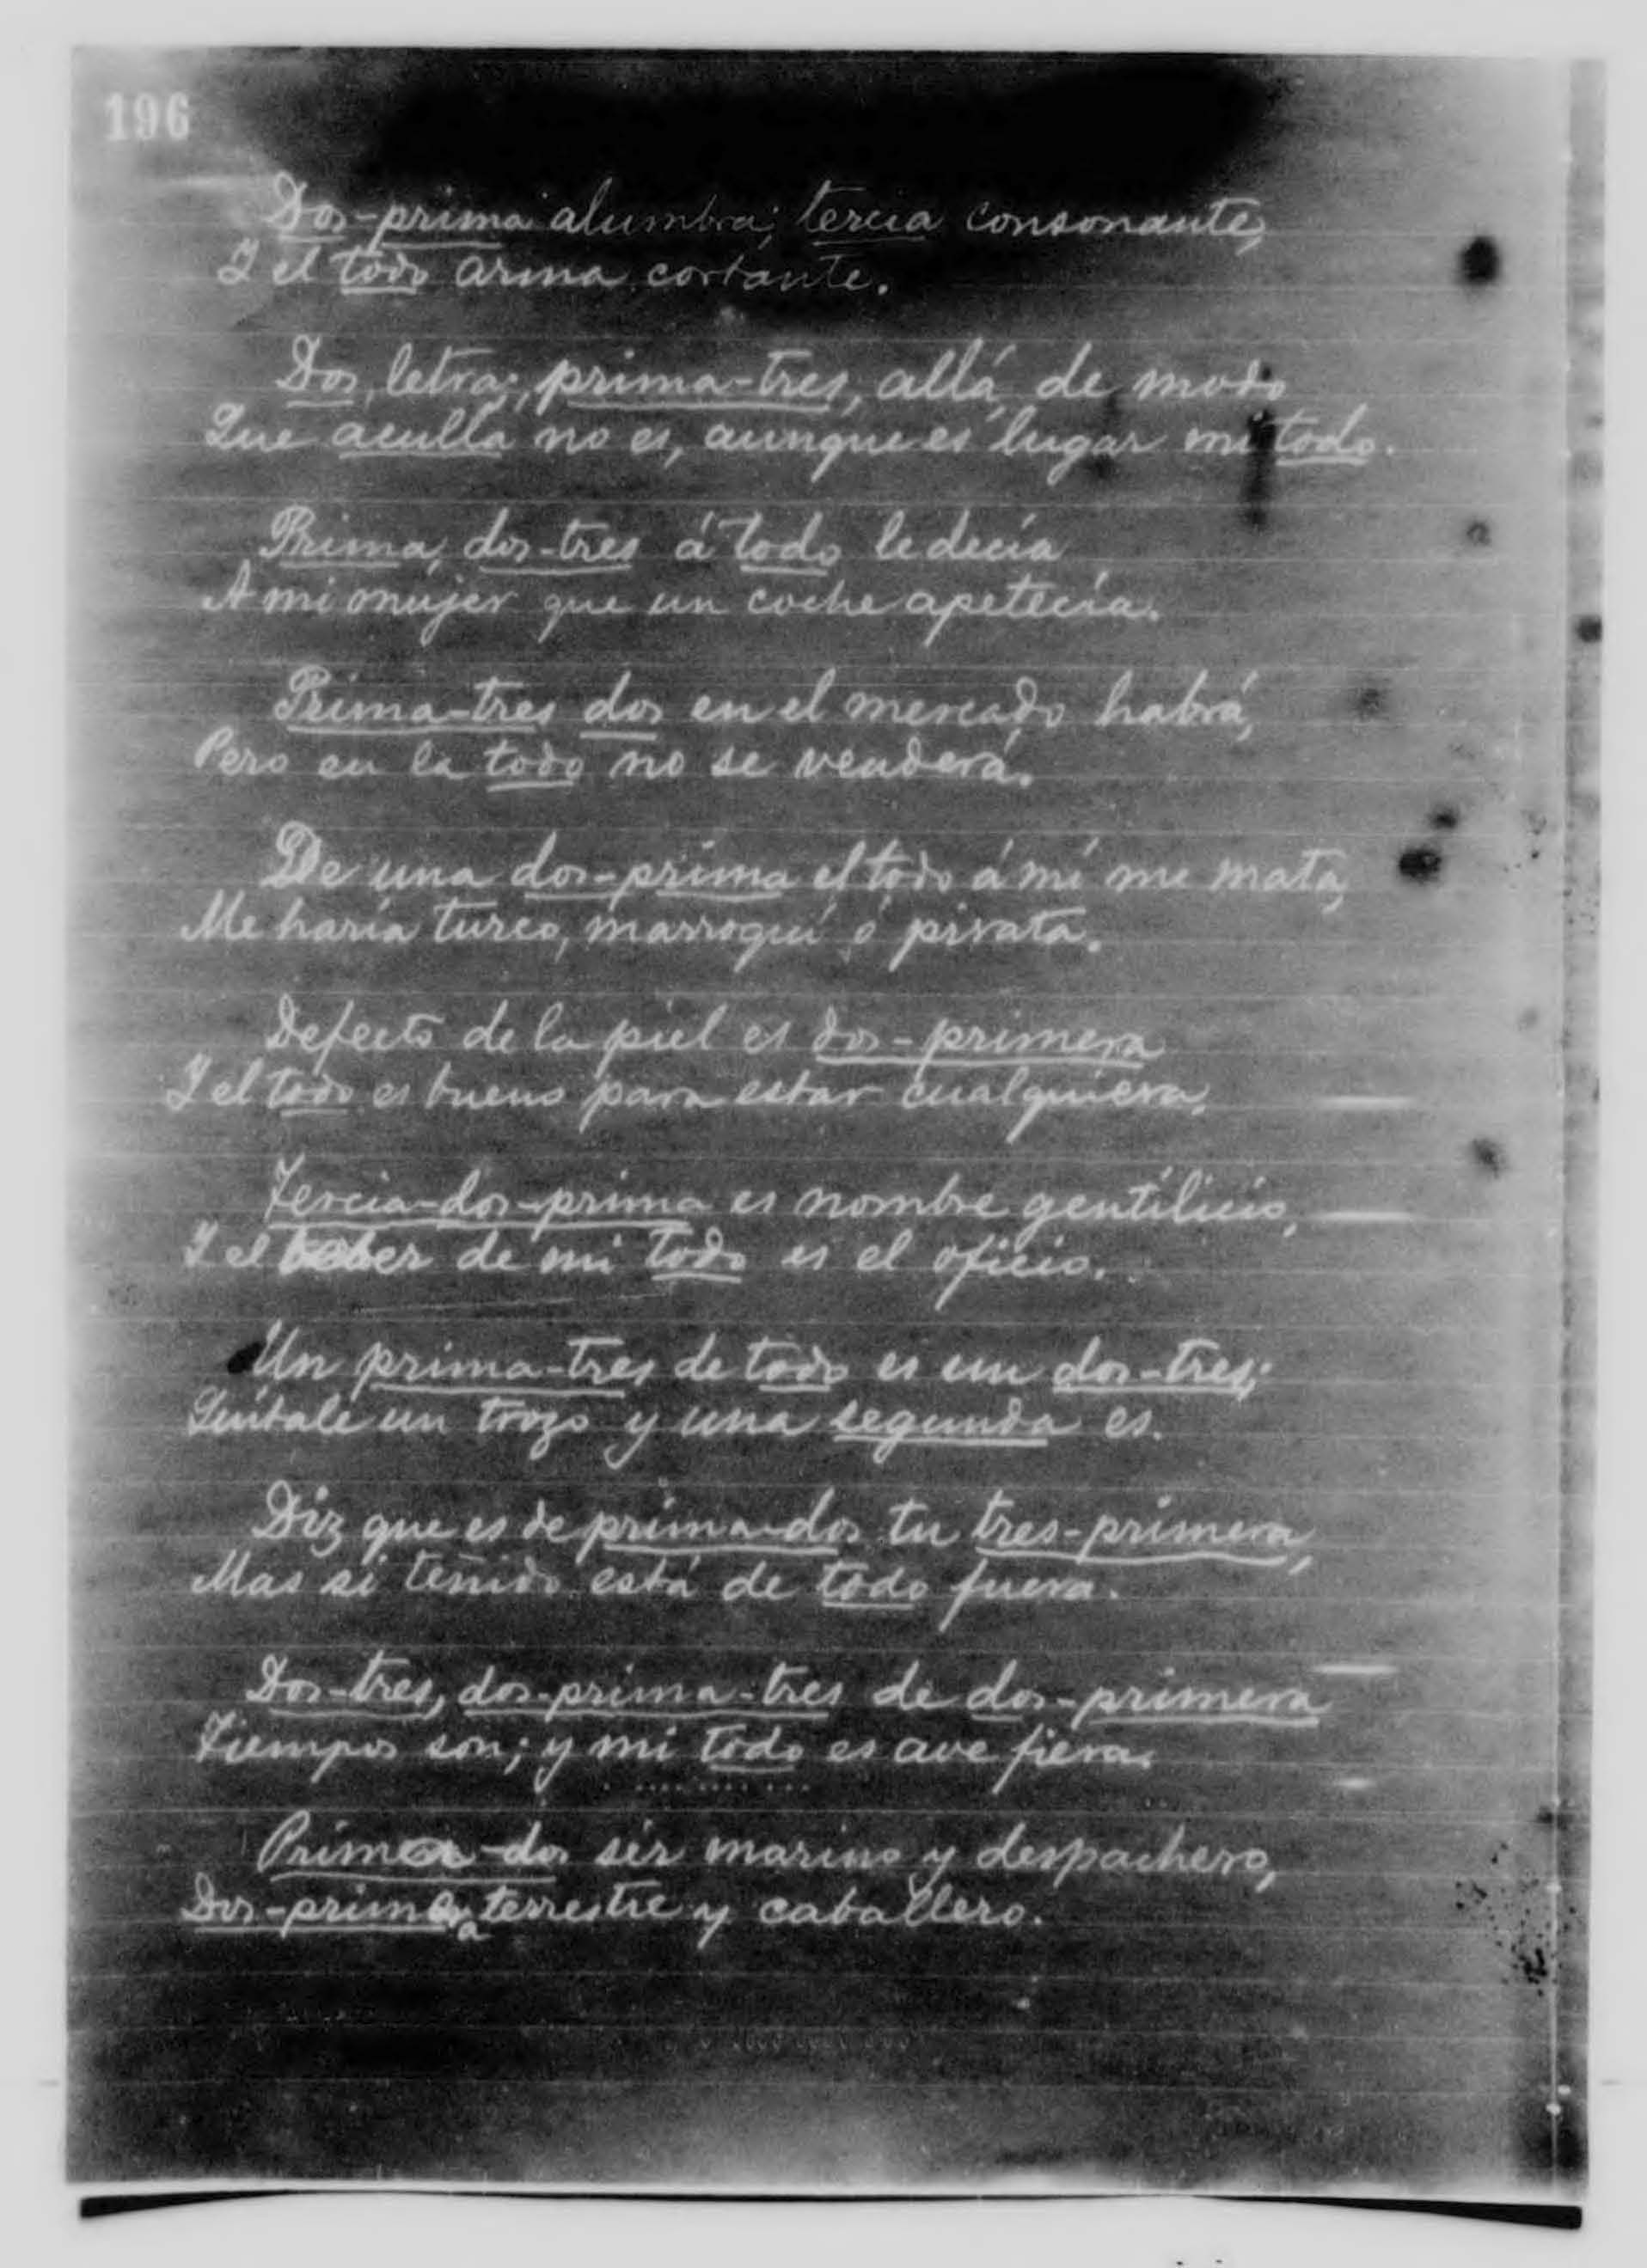 196
Dos-prima alumbra; tercia consonante,
Y el todo arma cortante.
Dos, letra; prima-tres, allá, de modo
Que acullá no es, aunque es lugar mi todo.
Prima, dos-tres á todo le decía
A mi mujer que un coche apetecía.
Prima-tres dos en el mercado habrá,
Pero en la todo no se venderá.
De una dos-prima el todo á mí me mata,
Me haría turco, marroquí ó pirata.
Defecto de la piel es dos-primera
Y el todo es bueno para estar cualquiera.
Tercia-dos-prima es nombre gentilicio,
Y el beber de mi todo es el oficio.
Un prima-tres de todo es un dos-tres;
Quítale un trozo y una segunda es.
Diz que es de prima-dos tu tres-primera,
Mas si teñido está de todo fuera.
Dos-tres, dos-prima-tres de dos-primera
Tiempos son; y mi todo es ave fiera.
Prima-dos sér marino y despachero,
Dos-prima terrestre y caballero.